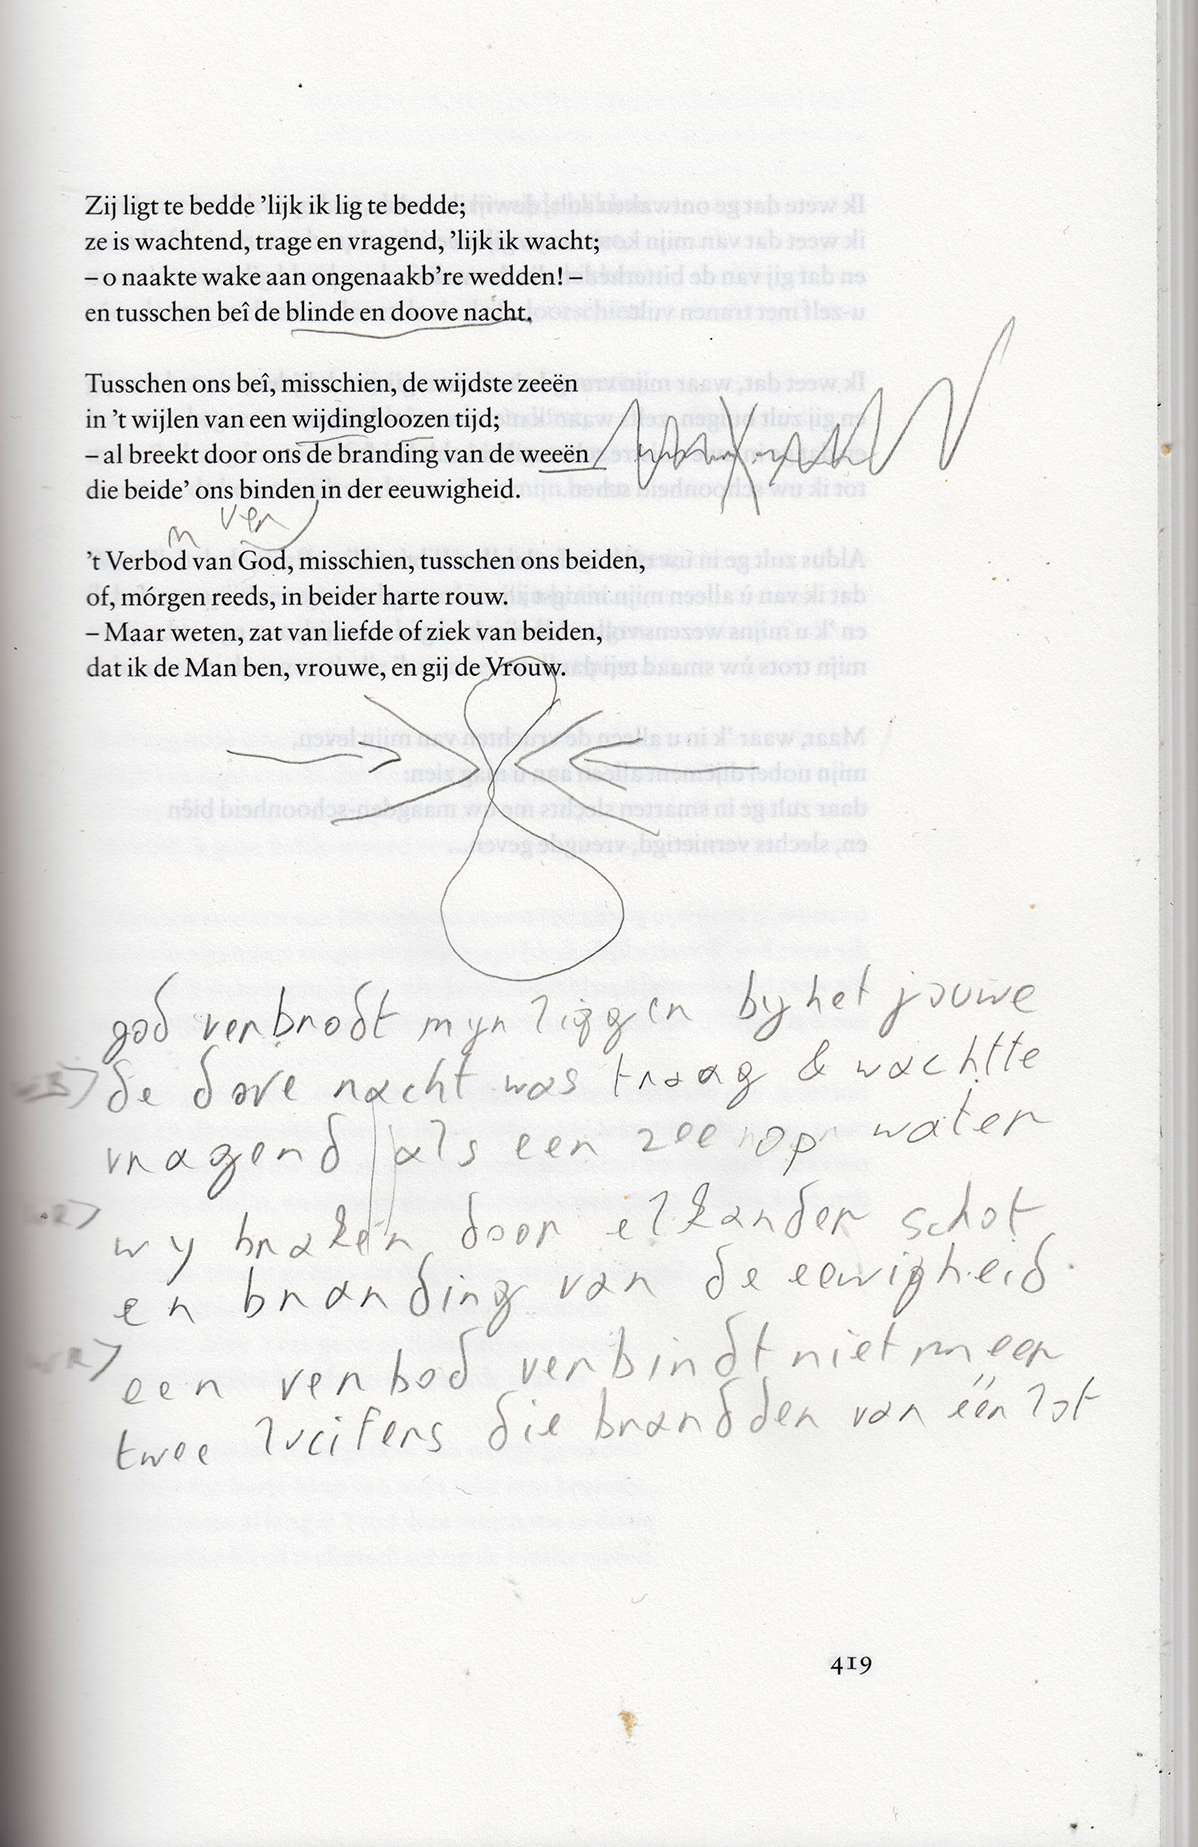 Zij ligt te bedde ’lijk ik lig te bedde;
ze is wachtend, trage en vragend, ’lijk ik wacht;
– o naakte wake aan ongenaakb’re wedden! –
en tusschen beî de blinde en doove nacht.
Tusschen ons beî, misschien, de wijdste zeeën
in ’t wijlen van een wijdingloozen tijd;
– al breekt door ons de branding van de weeën
die beide’ ons binden in der eeuwigheid.
ver
’t Verbod van God, misschien, tusschen ons beiden,
of, mórgen reeds, in beider harte rouw.
– Maar weten, zat van liefde of ziek van beiden,
dat ik de Man ben, vrouwe, en gij de Vrouw.
god verbrodt myn liggen by het jouwe
de dove nacht was traag & wachtte
vragend als een zee op water
wy braken door elkander schot
en branding van de eewigheid.
een verbod verbindt niet meer
twee lucifers die brandden van één lot
419